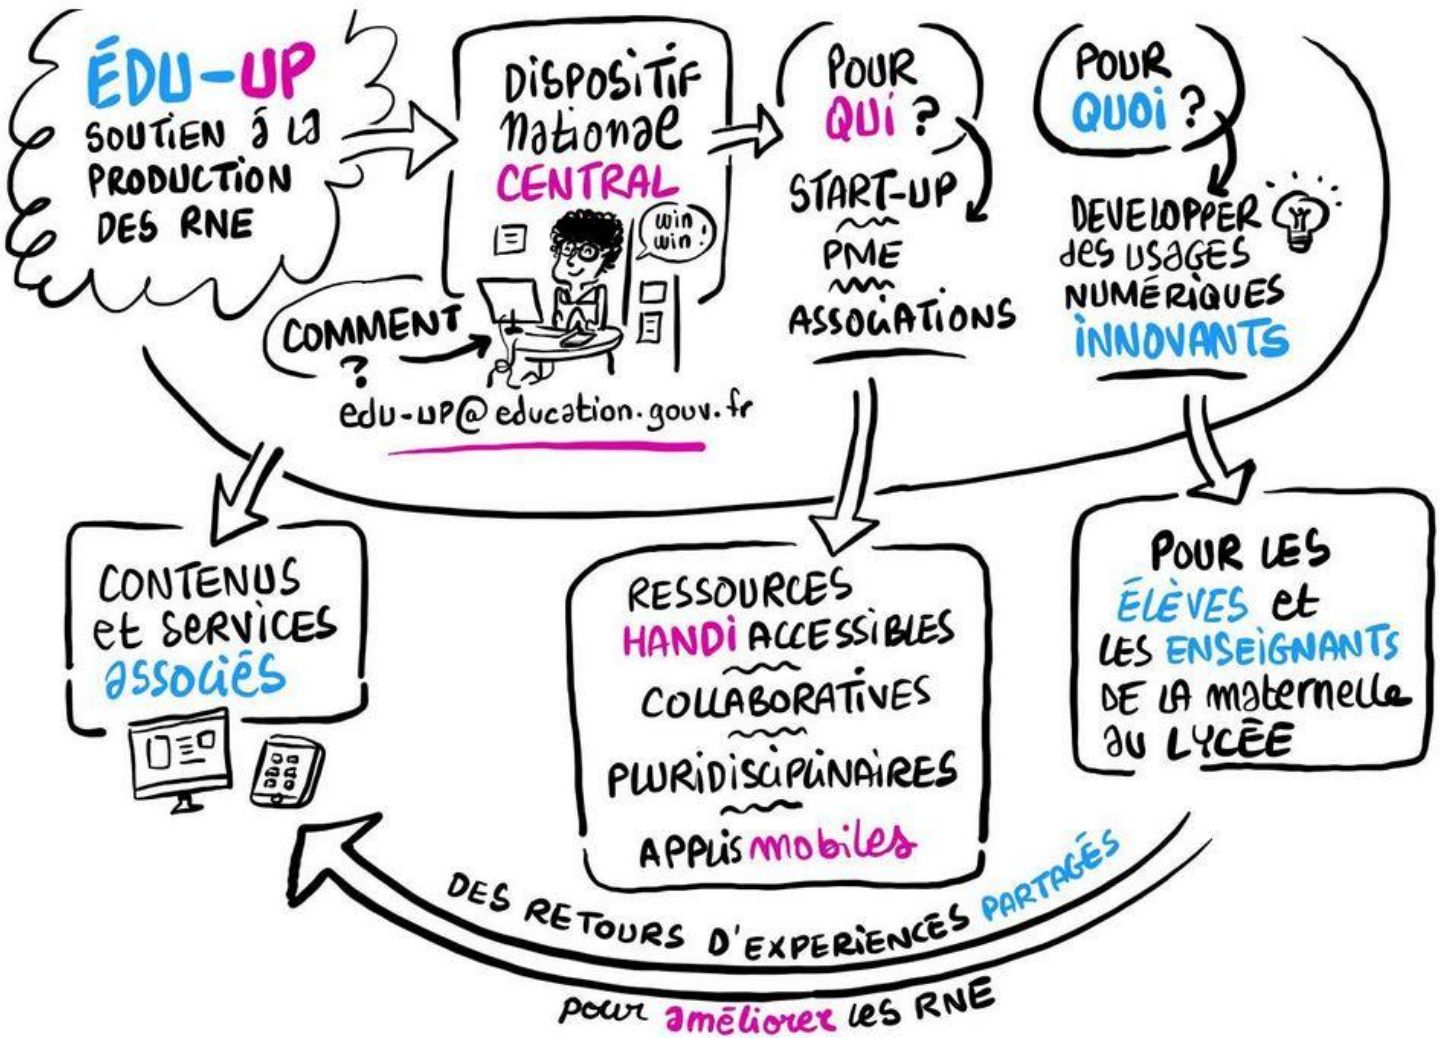 ÉDU-UP
SOUTIEN à LA
PRODUCTION
DES RNE
DISPOSITIF
national
CENTRAL
win
win !
COMMENT
?
edu-up@education.gouv.fr
POUR
QUI ?
START-UP
PME
ASSOCIATIONS
POUR
QUOI ?
DEVELOPPER
des USAGES
NUMÉRIQUES
INNOVANTS
CONTENUS
et SERVICES
associés
RESSOURCES
HANDI ACCESSIBLES
COLLABORATIVES
PLURIDISCIPLINAIRES
APPLIS mobiles
POUR LES
ÉLÈVES et
LES ENSEIGNANTS
DE LA maternelle
au LYCÉE
DES RETOURS D'EXPERIENCES PARTAGÉS
pour améliorer les RNE